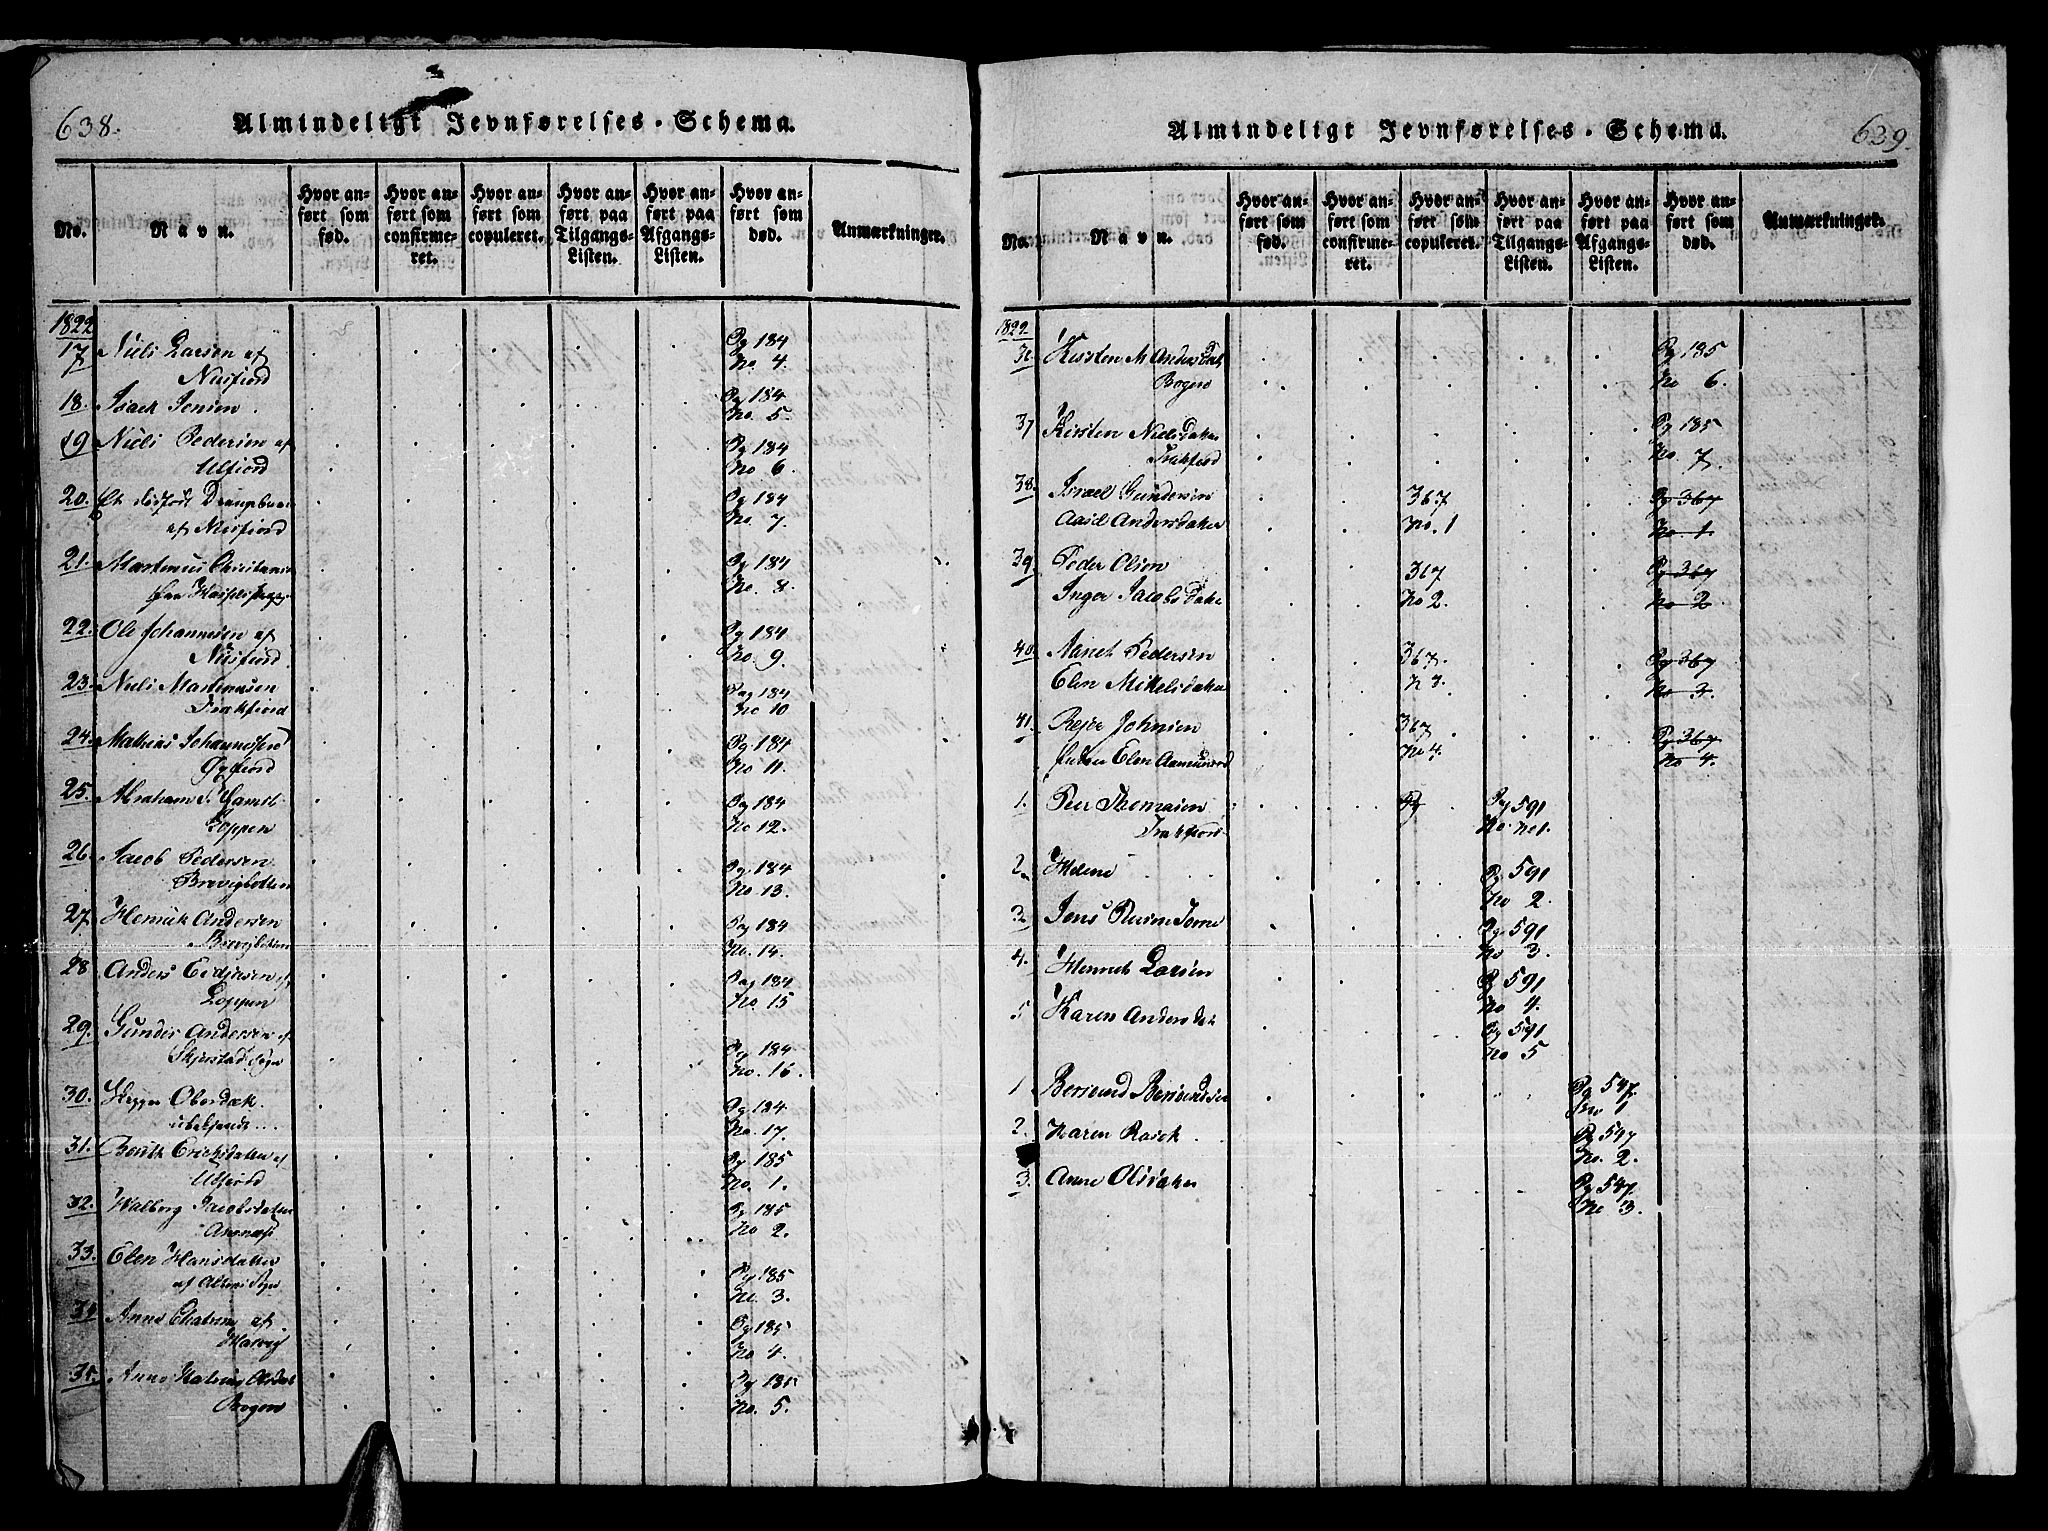 638.
Almindeligt Jevnførelses-Schema.
No.
Navn.
Hvor anført som fød.
Hvor anført som confirmeret.
Hvor anført som copuleret.
Hvor anført paa Tilgangs-Listen.
Hvor anført paa Afgangs-Listen.
Hvor anført som død.
Anmærkninger.
1822
17 Niels Larsen af Pg 184
Nusfiord No. 4.
18. Isack Jensen. Pg 184
No. 5.
19 Niels Pedersen af Pg 184
Ulfiord No 6.
20. Et dødfødt Drængebarn Pg 184
af Nusfiord No. 7.
21. Martinus Christiansen Pg 184
No. 8.
22. Ole Johannesen af Pg 184
Nusfiord No. 9.
23. Niels Martinusen Pag 184
No 10
24. Mathias Johannessen Pg 184
Øyfiord No 11.
25. Abraham Pg 184
Loppen No 12.
26. Jacob Pedersen Pg 184
Brevigbotten No 13.
27 Henrick Andersen Pag 184
No. 14.
28 Anders af Pag 184
Loppen No 15
29. Gunder Andersen af Pg 184
Skjerstad Sogn No. 16.
30. Pg 184
ubekjendt... No. 17.
31. Erichsdatter af Pg 185
Ulfiord No. 1.
32. Walborg Jacobsdatter Pg 185
No 2.
33. Elen Hansdatter Pg 185
No. 3.
34 Anne af Pg 185
No 4.
35. Anne Pg 185
Bogen No. 5.
Almindeligt Jevnførelses-Schema.
639.
No.
Navn.
Hvor anført som fød.
Hvor anført som confirmeret.
Hvor anført som copuleret.
Hvor anført paa Tilgangs-Listen.
Hvor anført paa Afgangs-Listen.
Hvor anført som død.
Anmærkninger.
1822.
36 Kirsten M Andersdat Pg 185
Bogen No 6.
37 Kirsten Nielsdatter Pg 185
No. 7.
38. Israel Gundersen 367 Pg 367
Andersdatter No. 1 No 1
39. Peder Olsen 367 Pg 367
Inger Jacobsdatter No 2. No 2
40. Pedersen 367. Pg 367
Elen Mikelsdatter N 3. No 3.
41. Johnsen 367 Pg 367
Elen No 4. No 4.
1. Peer Thomasen Pg Pg 591
No. No 1.
2. Helene Pg 591
No 2.
3. Jens Pg 591
No 3.
4. Larsen Pg 591
No 4.
5 Karen Andersdat Pg 591
No 5
1 Pg 547.
No 1
2. Karen Rasch Pg 547
No. 2.
3. Anne Olsdatter Pg 547.
No 3.